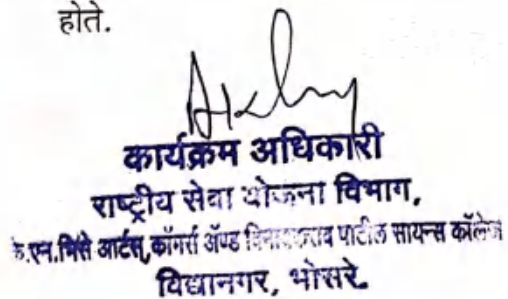 होते.
कार्यक्रम अधिकारी
राष्ट्रीय सेवा योजना विभाग,
के.एन.भिसे आर्टस्,कॉमर्स अँण्ड विनायकराव पाटील सायन्स कॉलेज
विद्यानगर, भोसरे.